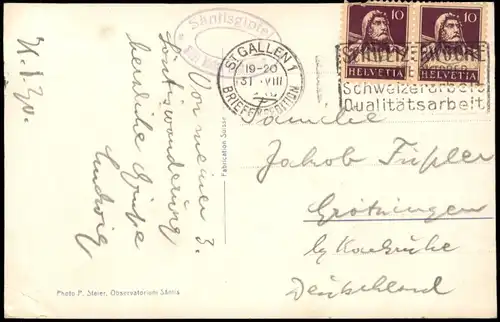 Säntisgipfel
ST. GALLEN 1
19-20
31.VIII
BRIEFEXPEDITION
10
10
HELVETIA
HELVETIA
SCHWEIZERWOCHE
Schweizerarbeit
Qualitätsarbeit
Von meiner 3.
Säntiswanderung
herzliche Grüße
Ludwig
Fabrication Suisse
Familie
Jakob Füßler
Grötzingen
b/ Karlsruhe
Deutschland
Photo P. Steier, Observatorium Säntis